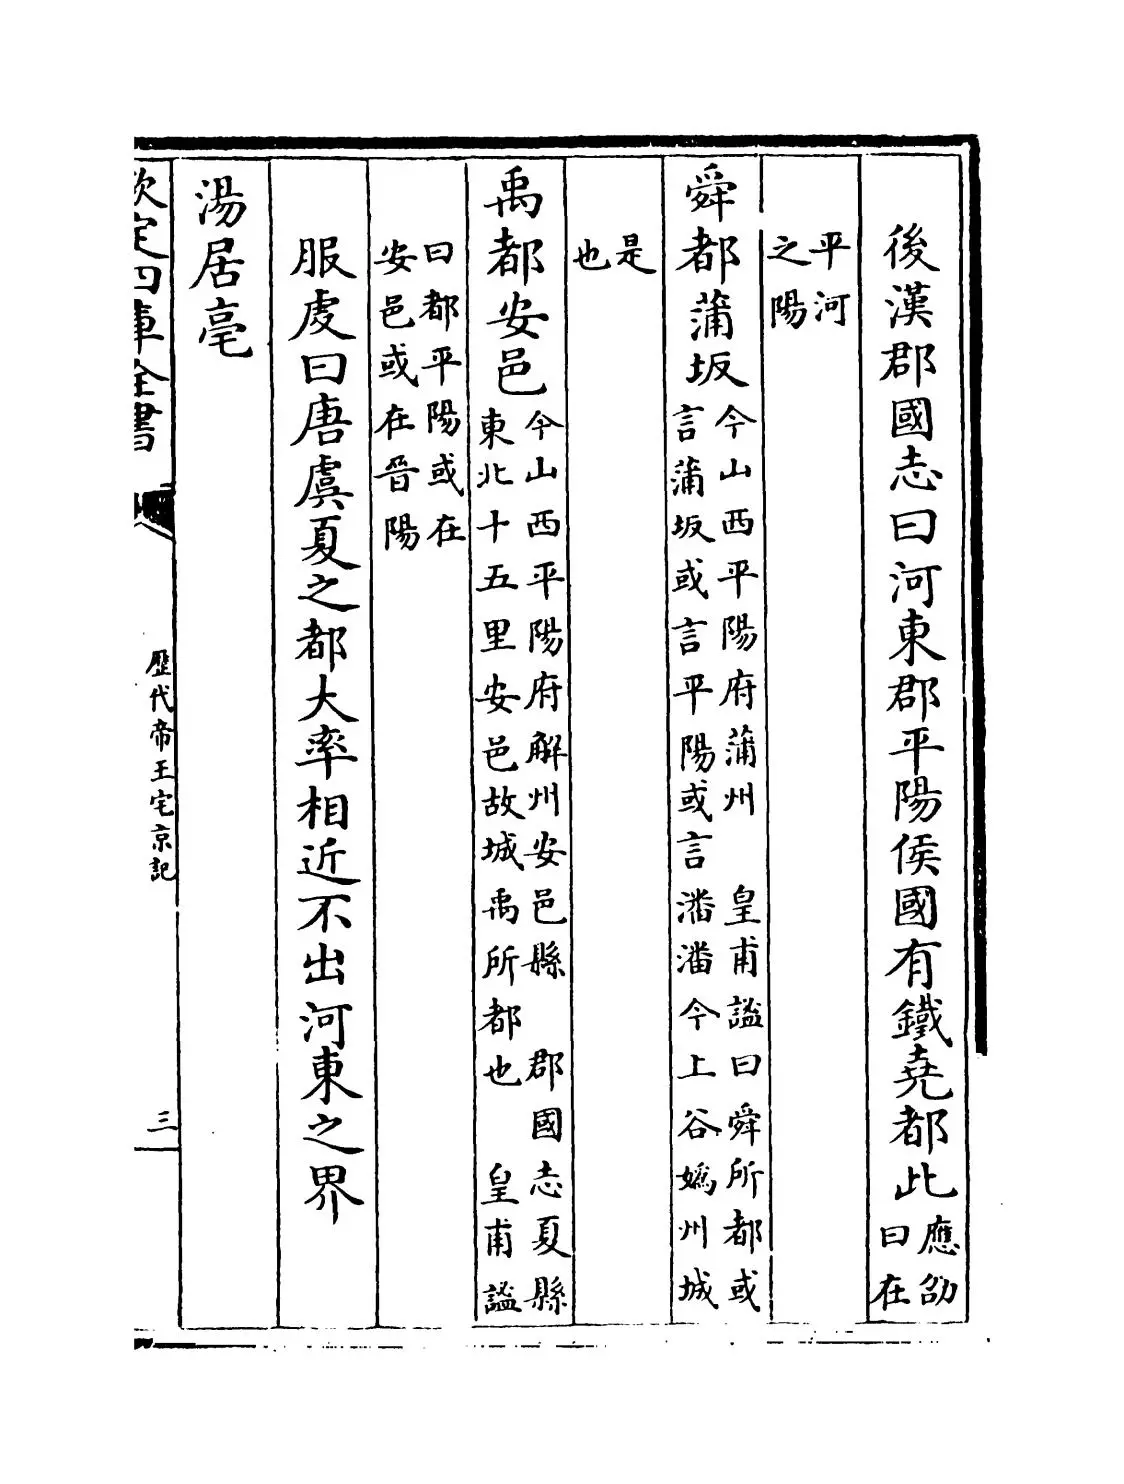 後漢郡國志曰河東郡平陽侯國有鐵堯都此應劭曰在
平河之陽
舜都蒲坂今山西平陽府蒲州 皇甫謐曰舜所都或言蒲坂或言平陽或言潘潘今上谷媯州城
是也
禹都安邑今山西平陽府解州安邑縣 郡國志夏縣東北十五里安邑故城禹所都也 皇甫謐
曰都平陽或在安邑或在晉陽
服虔曰唐虞夏之都大率相近不出河東之界
湯居亳
欽定四庫全書
歷代帝王宅京記
三